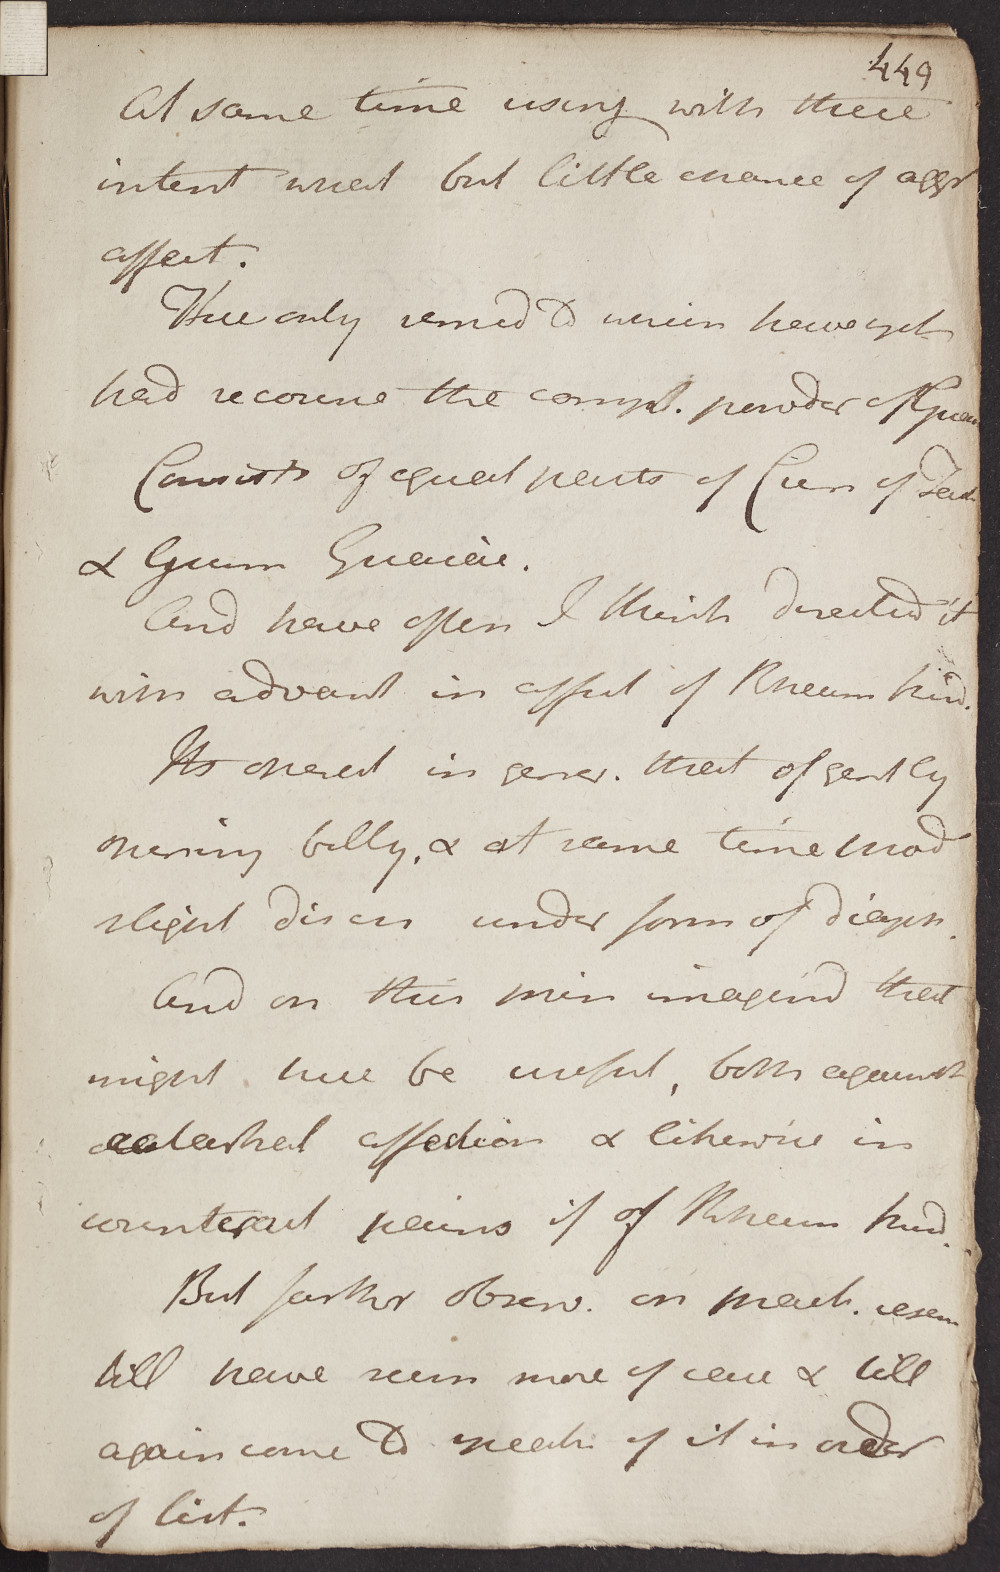 449
At same time using with these
intent what but little chance of aggr
affect.
The only remed to which have yet
had recourse the comp. powder of Guai
Consists of equal parts of Crem of Tart
& Gum Guaiac.
And have often I think directed it
with advant in affect of Rheum kind.
Its operat in gener. that of gently
opening belly, & at same time prod
slight disch under form of diaph.
And on this prin imagind that
might here be useful, both against
catarhal affection & likewise in
counteract pains if of Rheum kind.
But farther observ. on pract. reserv
till have seen more of case & till
again come to speak of it in order
of list.